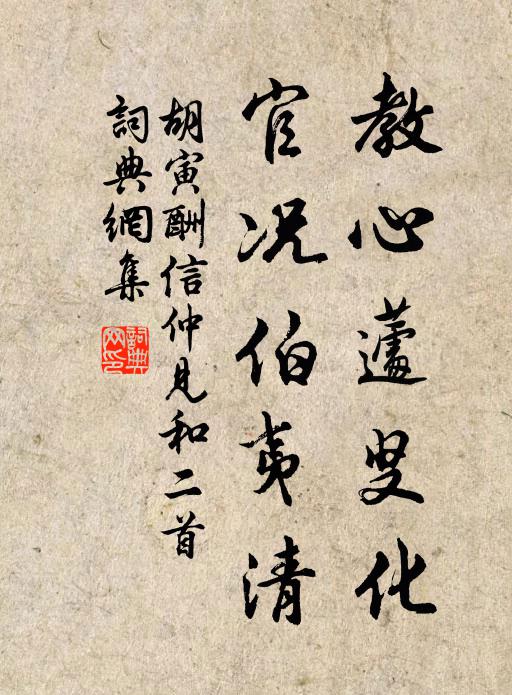 教心蘧叟化
官况伯夷清
胡寅酬信仲見和二首
詞典網集
詞典
网印